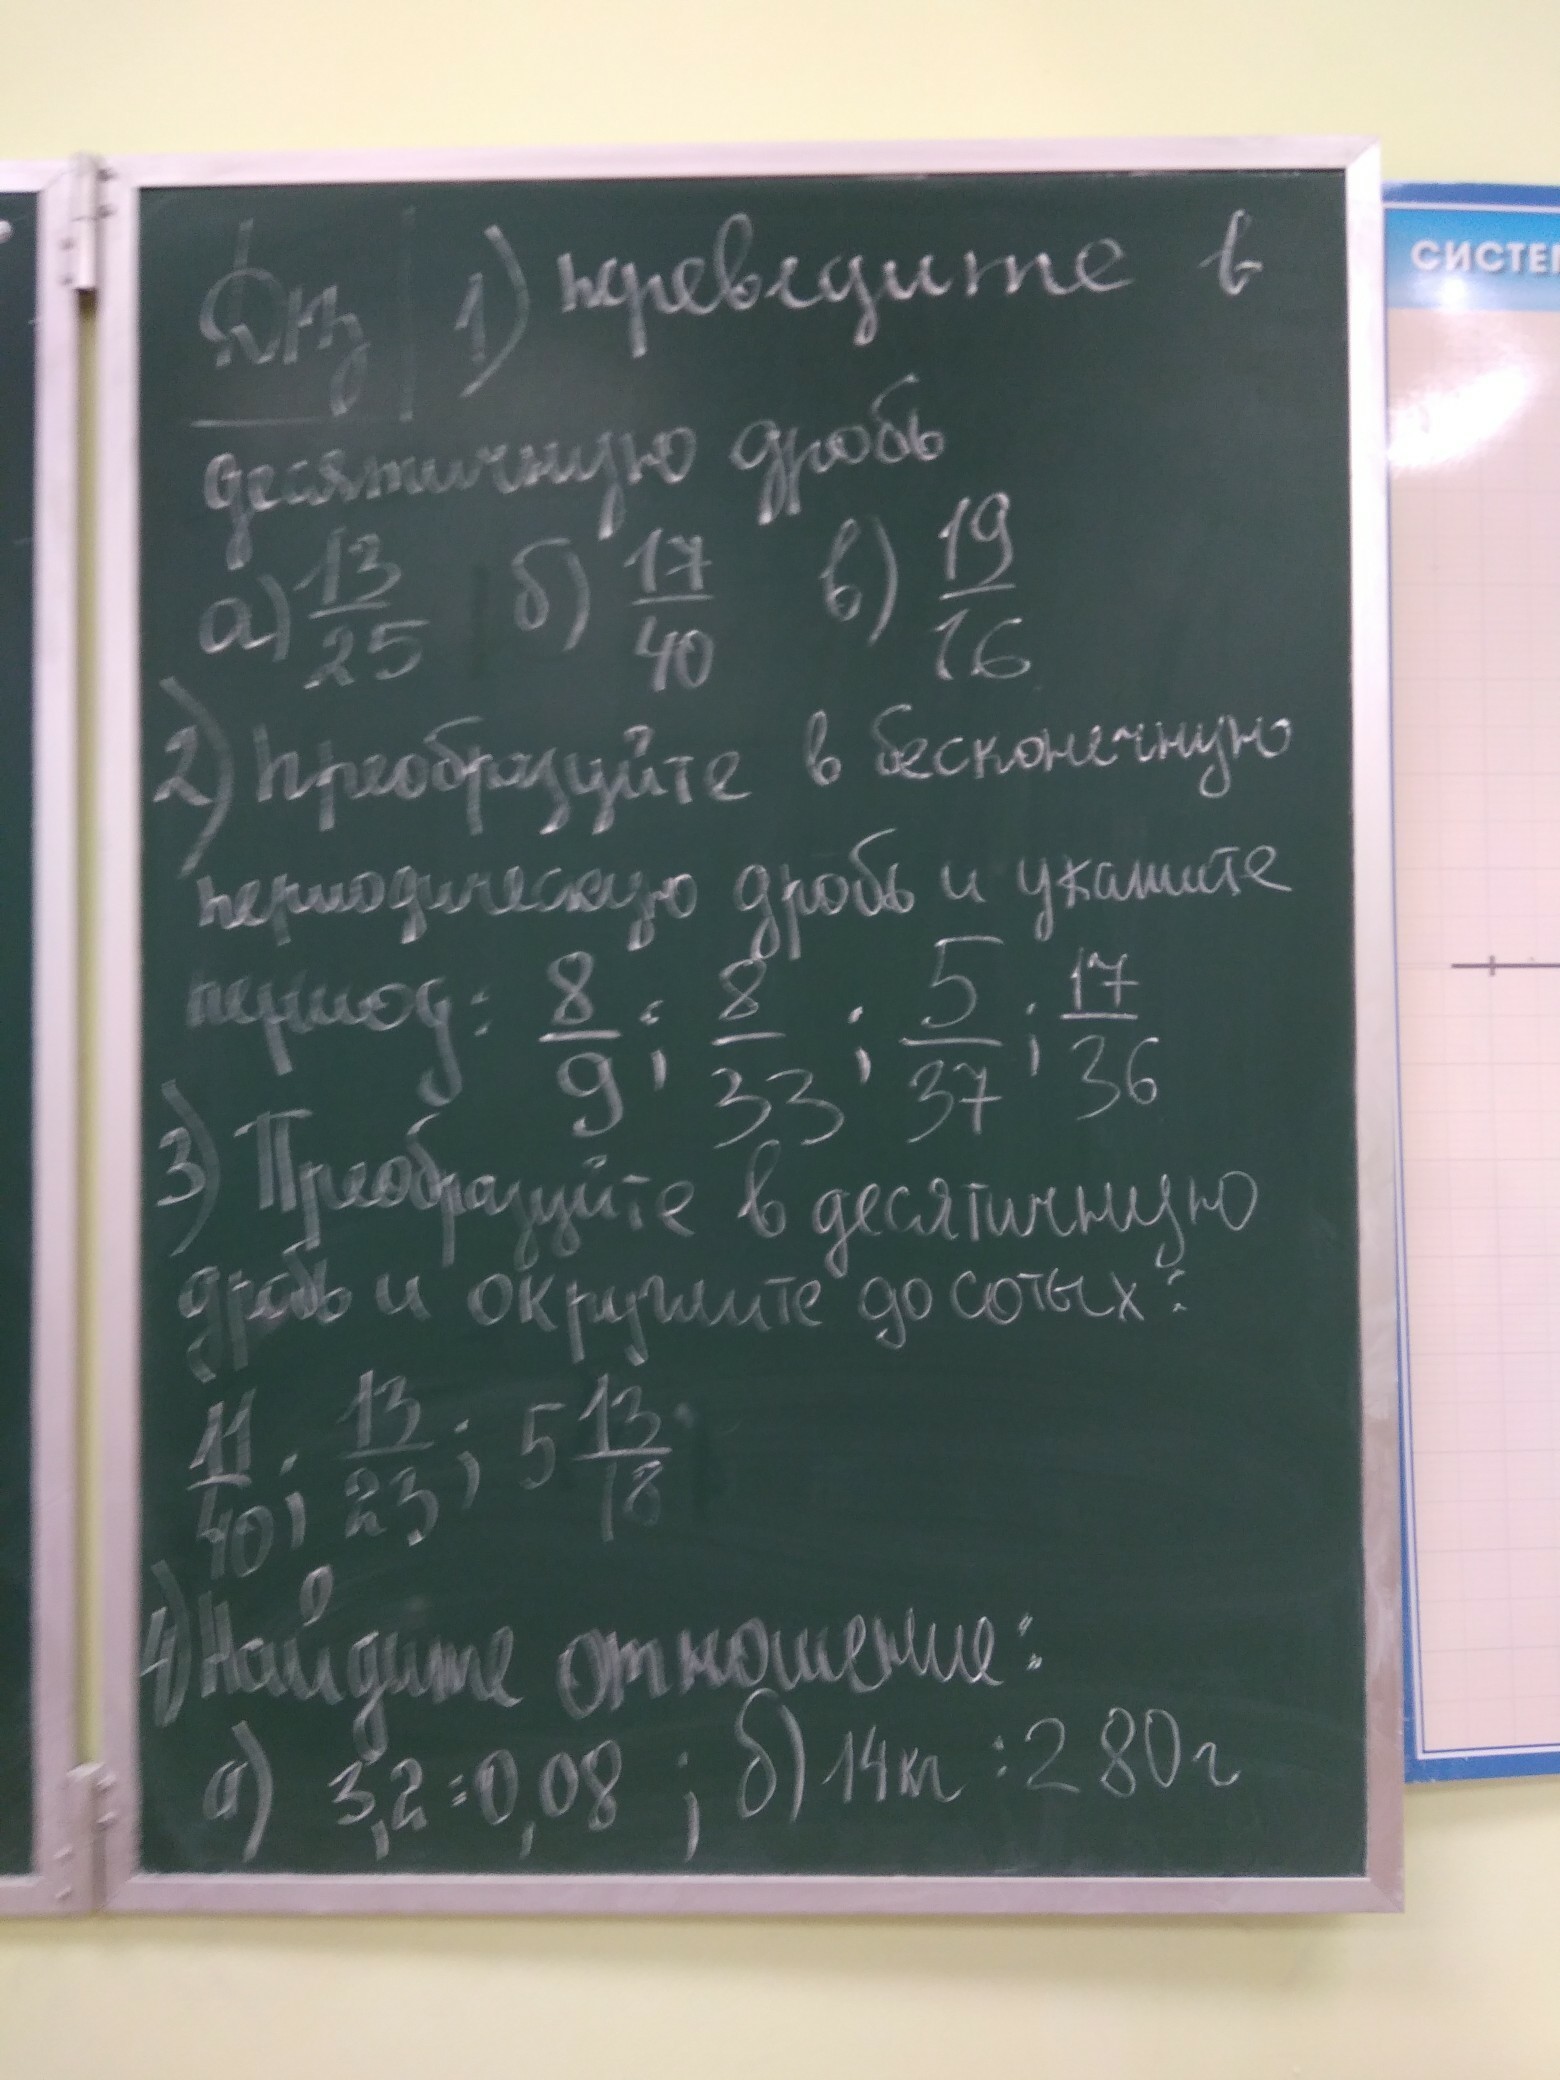 Дз 1) переведите в
десятичную дробь
а) 13/25 б) 17/40 в) 19/16
2) преобразуйте в бесконечную
периодическую дробь и укажите
период: 8/9; 8/33; 5/37; 17/36
3) Преобразуйте в десятичную
дробь и округлите до сотых:
11/40; 13/23; 5 13/18
4) Найдите отношение:
а) 3,2:0,08; б) 14кг:280г
СИСТЕМ